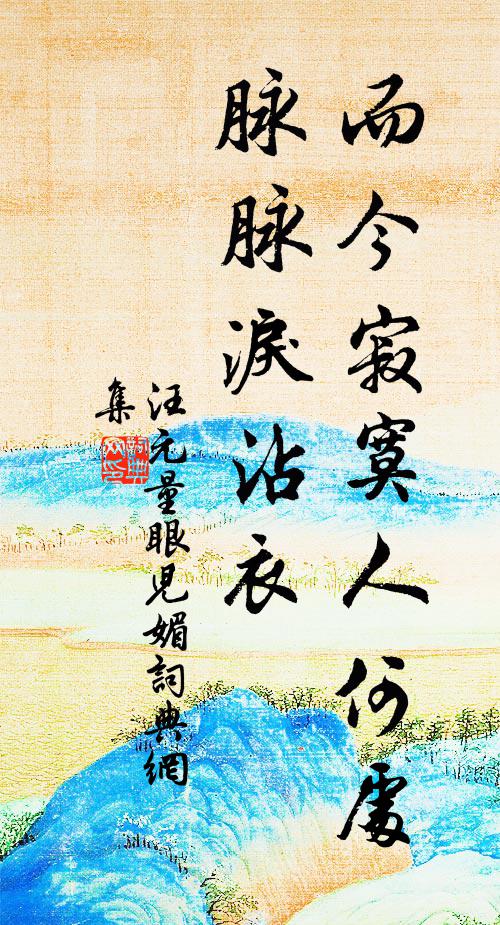 而今寂寞人何處
脉脉淚沾衣
汪元量眼兒媚詞典網
集